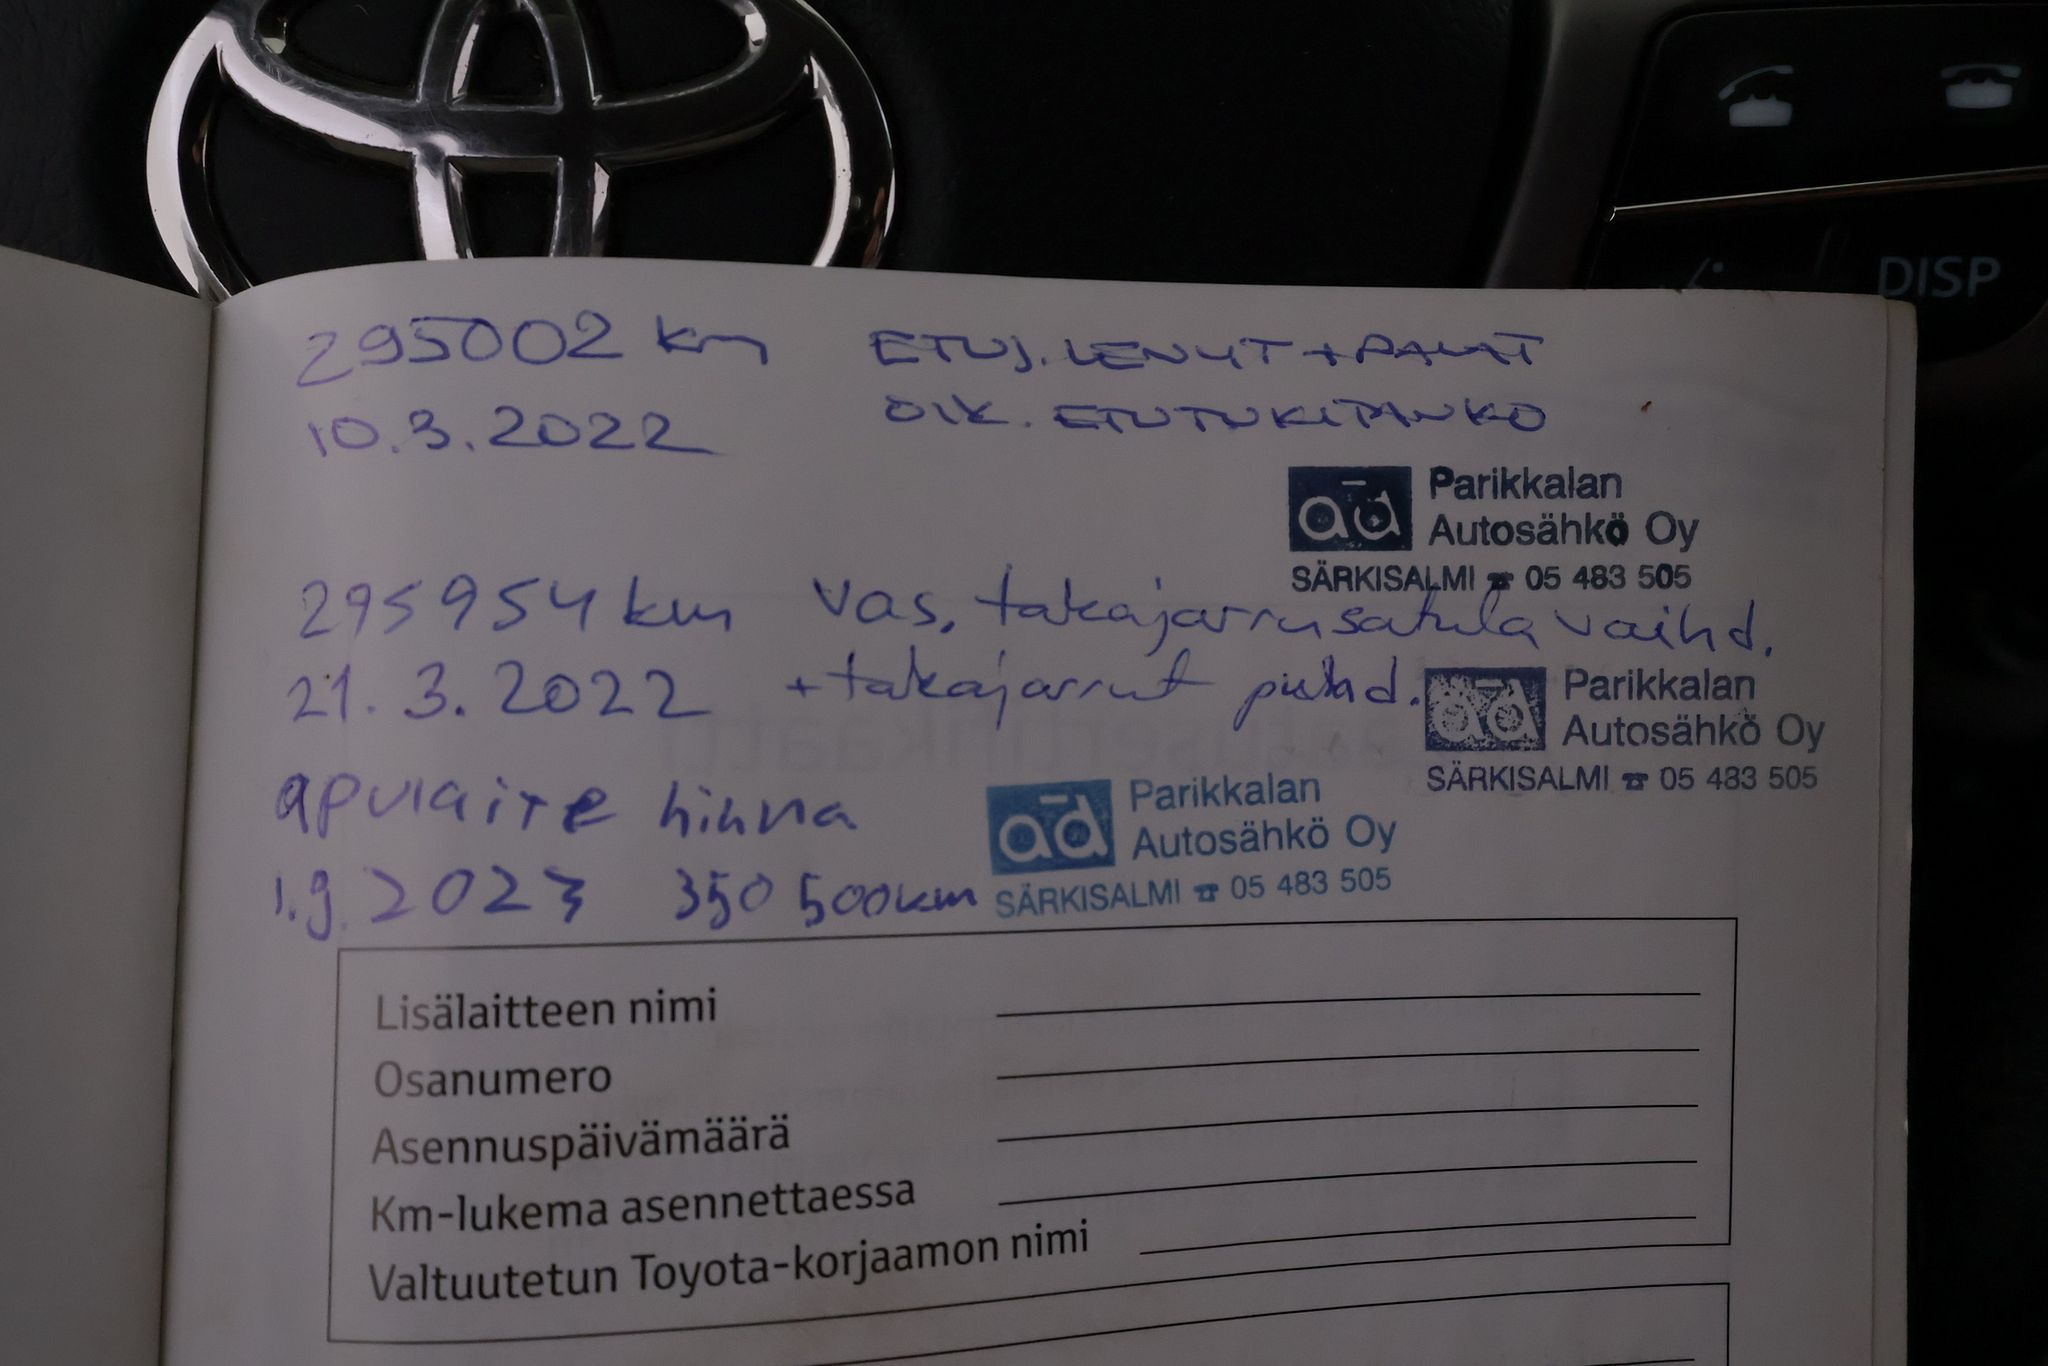 DISP
295002 km ETUJ. LEVYT + PALAT
10.3.2022 OIK. ETUTUKIPANKO
ad Parikkalan
Autosähkö Oy
SÄRKISALMI ☎ 05 483 505
295954 km vas. takajarrusatula vaihd.
21.3.2022 + takajarrut puhd.
ad Parikkalan
Autosähkö Oy
SÄRKISALMI ☎ 05 483 505
apulaite hihna
1.9.2023 350 500km
ad Parikkalan
Autosähkö Oy
SÄRKISALMI ☎ 05 483 505
Lisälaitteen nimi
Osanumero
Asennuspäivämäärä
Km-lukema asennettaessa
Valtuutetun Toyota-korjaamon nimi